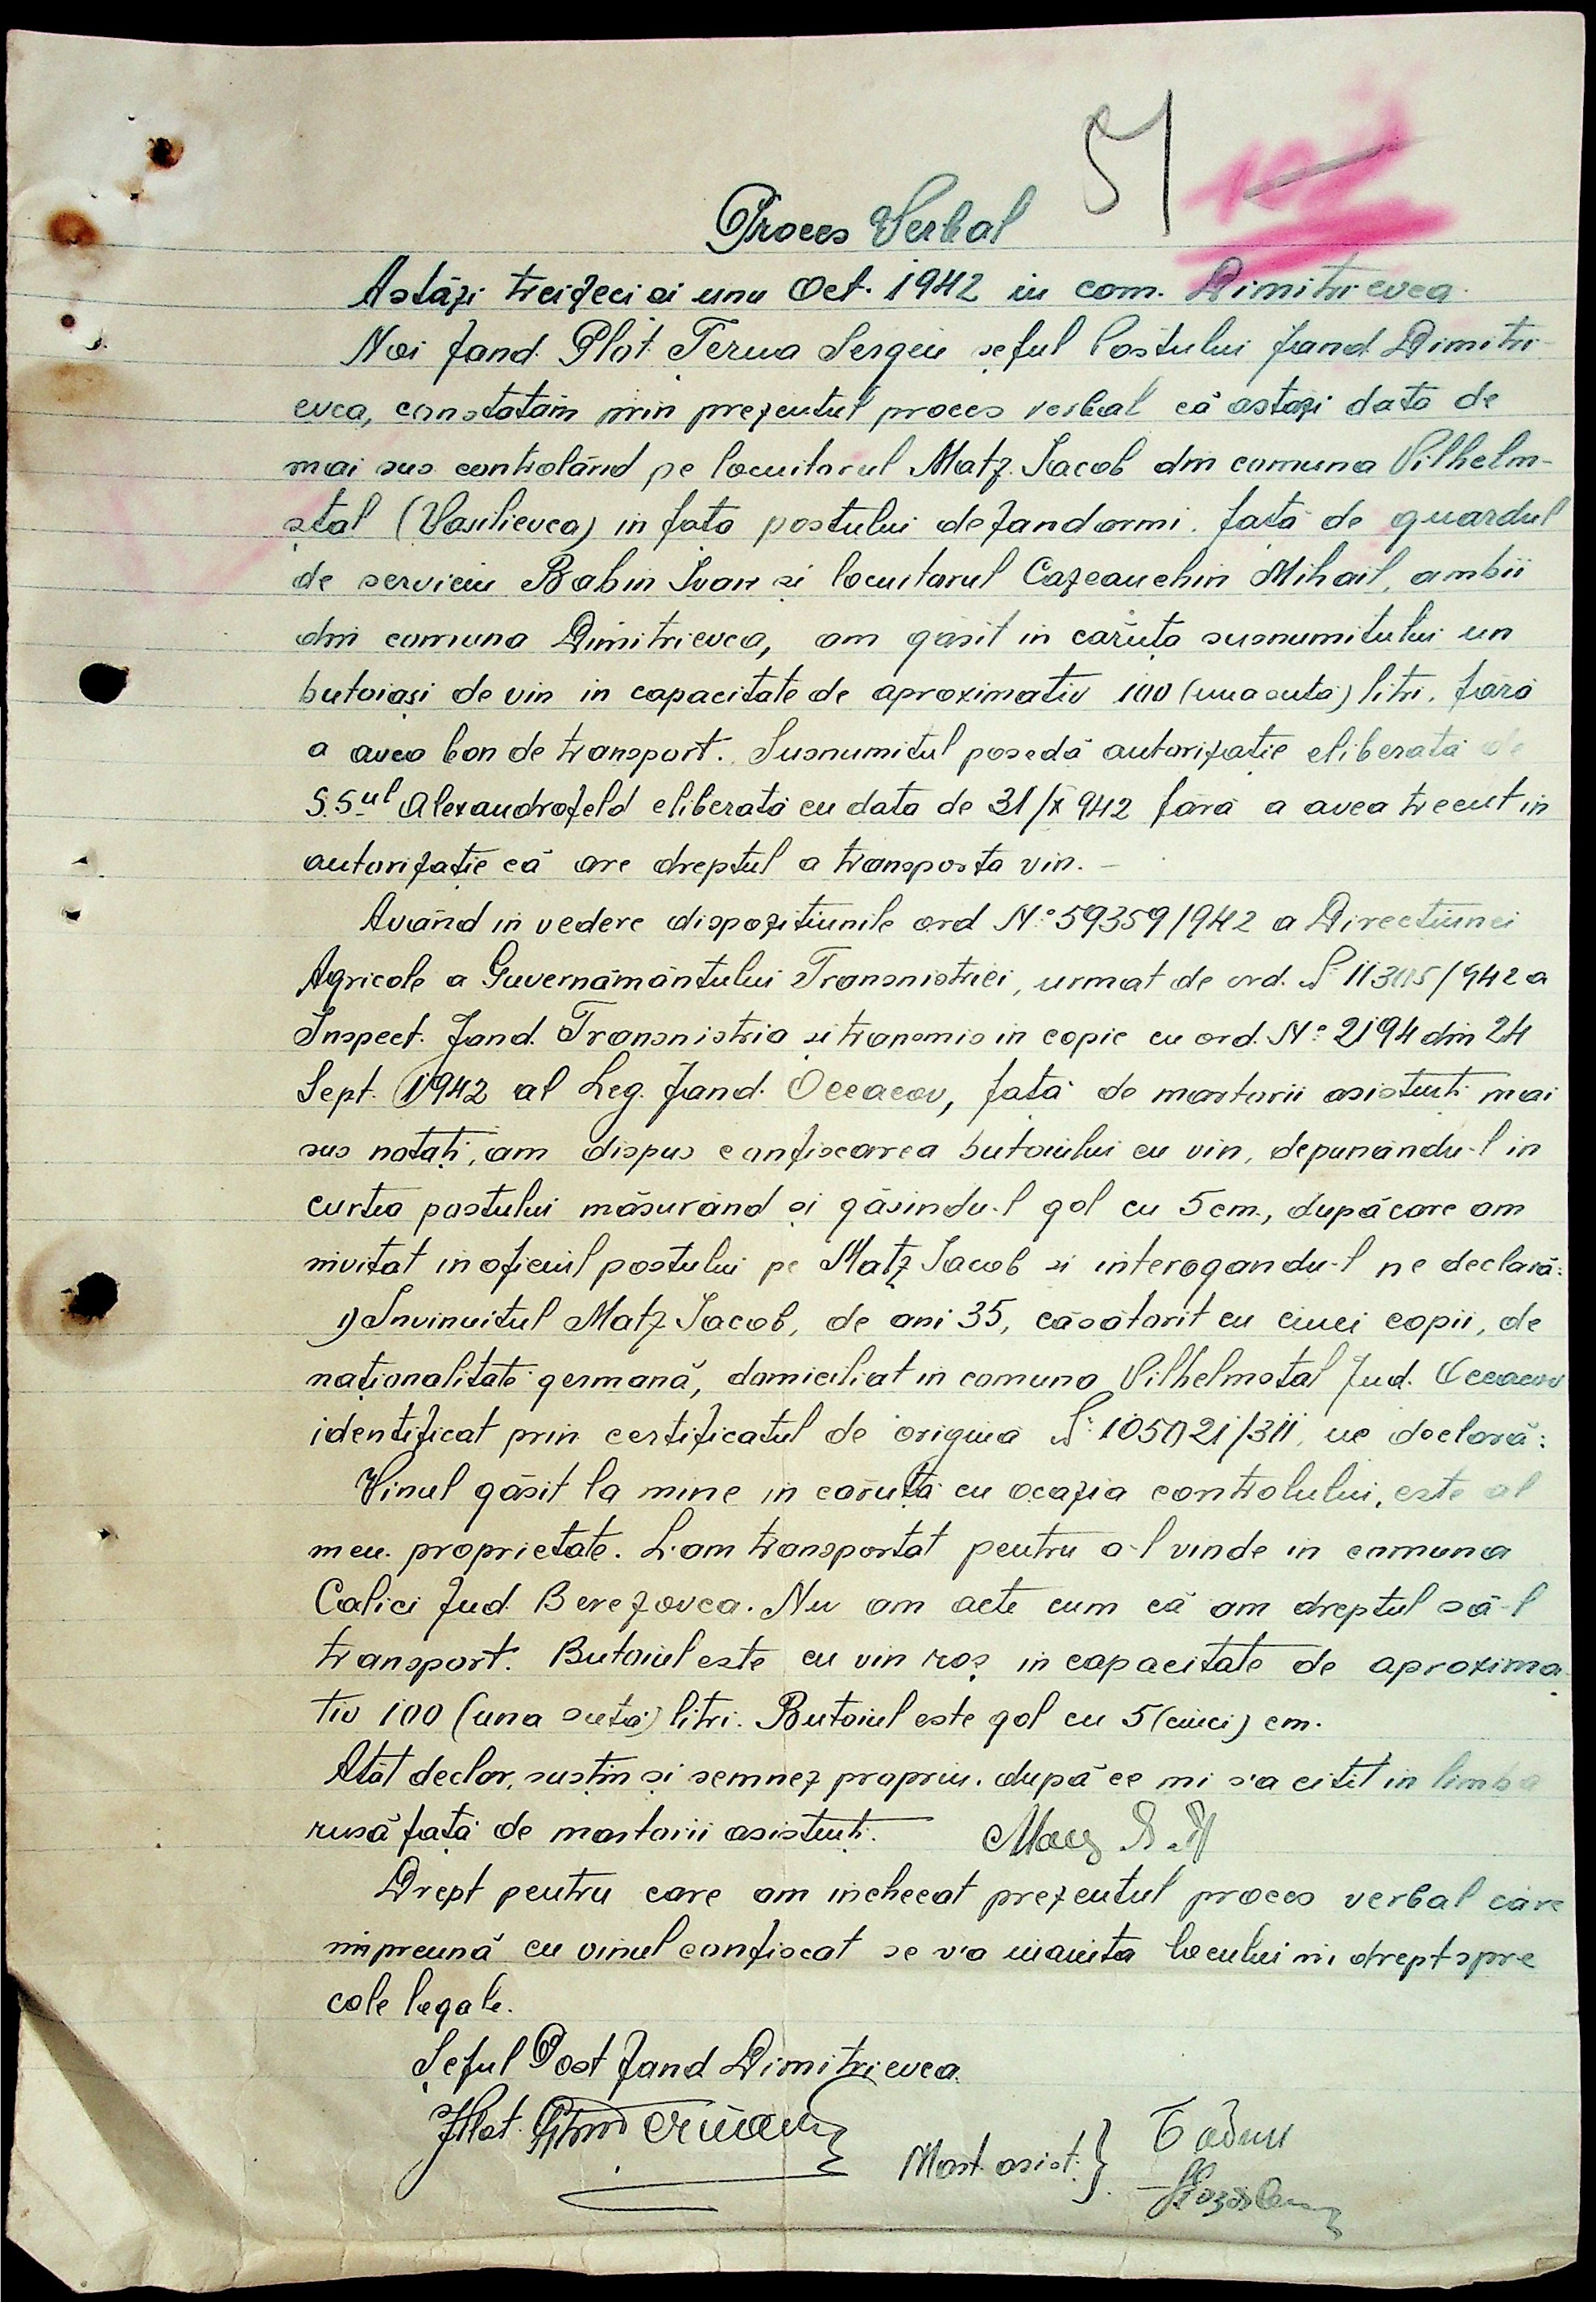 51
Proces Verbal
Astăzi treizeci și unu Oct. 1942 in com. Dimitrievca.
Noi Jand. Plot. Terna Sergiu șeful Postului Jand. Dimitri-
evca, constatăm prin prezentul proces verbal că astăzi data de
mai sus controlând pe locuitorul Matz Iacob din comuna Vilhelm-
stal (Vasilievca) in fata postului de Jandarmi. fată de guardul
de serviciu Babin Ivan si locuitorul Cazeauchin Mihail, ambii
din comuna Dimitrievca, am găsit in caruța susnumitului un
butoiași de vin in capacitate de aproximativ 100 (una suta) litri, fara
a avea bon de transport. Susnumitul posedă autorizatie eliberată de
S.S-ul Alexandrofeld eliberată cu data de 31/X 942 fară a avea trecut in
autorizație că are dreptul a transporta vin. —
Avănd in vedere dispozitiunile ord Nº 59359/942 a Directiunei
Agricole a Guvernămăntului Transnistriei, urmat de ord. Nº 11305/942 a
Inspect. Jand. Transnistria și transmis in copie cu ord. Nº 2194 din 24
Sept. 1942 al Leg. Jand. Oceacov, fată de martorii asistenti mai
sus notați, am dispus confiscarea butoiului cu vin, depunăndu-l in
curtea postului măsurănd și găsindu-l gol cu 5 cm., după care am
invitat in oficiul postului pe Matz Iacob si interogandu-l ne declară:
1) Invinuitul Matz Iacob, de ani 35, căsătorit cu cinci copii, de
naționalitate germană, domiciliat in comuna Vilhelmstal Jud. Oceacov
identificat prin certificatul de origina Nº 105021/311, ne declară:
Vinul găsit la mine in căruță cu ocazia controlului, este al
meu proprietate. L-am transportat pentru a-l vinde in comuna
Calici Jud. Berezovca. Nu am acte cum că am dreptul să-l
transport. Butoiul este cu vin roș in capacitate de aproxima
tiv 100 (una suta) litri. Butoiul este gol cu 5 (cinci) cm.
Atăt declar, susțin și semnez propriu. după ce mi s'a citit in limba
rusă fată de martorii asistenti.
Drept pentru care am incheeat prezentul proces verbal care
impreună cu vinul confiscat se va inainta locului in drept spre
cele legale.
Șeful Post Jand Dimitrievca.
Plot.
Mart. asist. } Бабин